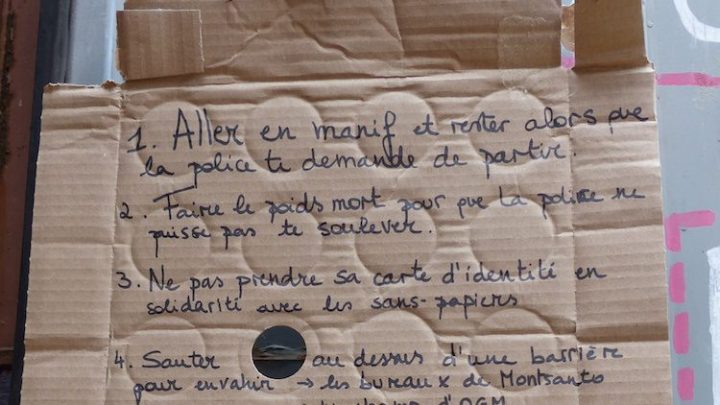 1. Aller en manif et rester alors que
la police te demande de partir.
2. Faire le poids mort pour que la police ne
puisse pas te soulever.
3. Ne pas prendre sa carte d'identité en
solidarité avec les sans-papiers
4. Sauter au dessus d'une barrière
pour envahir → les bureaux de Montsanto
d'OGM